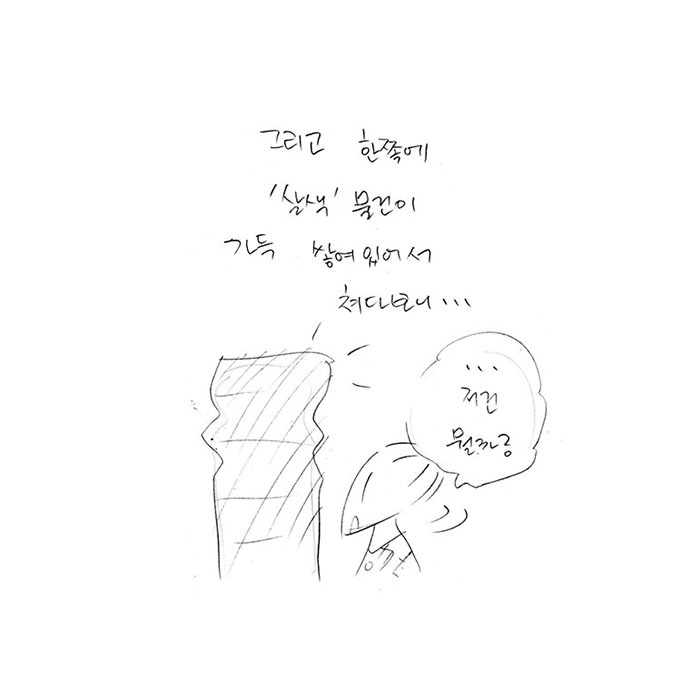 그리고 한쪽에
'살색' 물건이
가득 쌓여있어서
쳐다보니...
...
저건
뭘까용